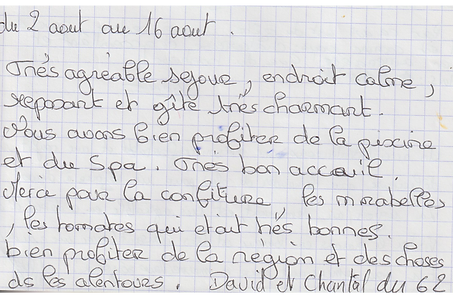 du 2 aout au 16 aout.
Très agréable sejour, endroit calme,
reposant et gîte très charmant.
Nous avons bien profiter de la piscine
et du Spa. Très bon accueil.
Merci pour la confiture les mirabelles
, les tomates qui etait très bonnes.
bien profiter de la région et des choses
ds les alentours. David et Chantal du 62